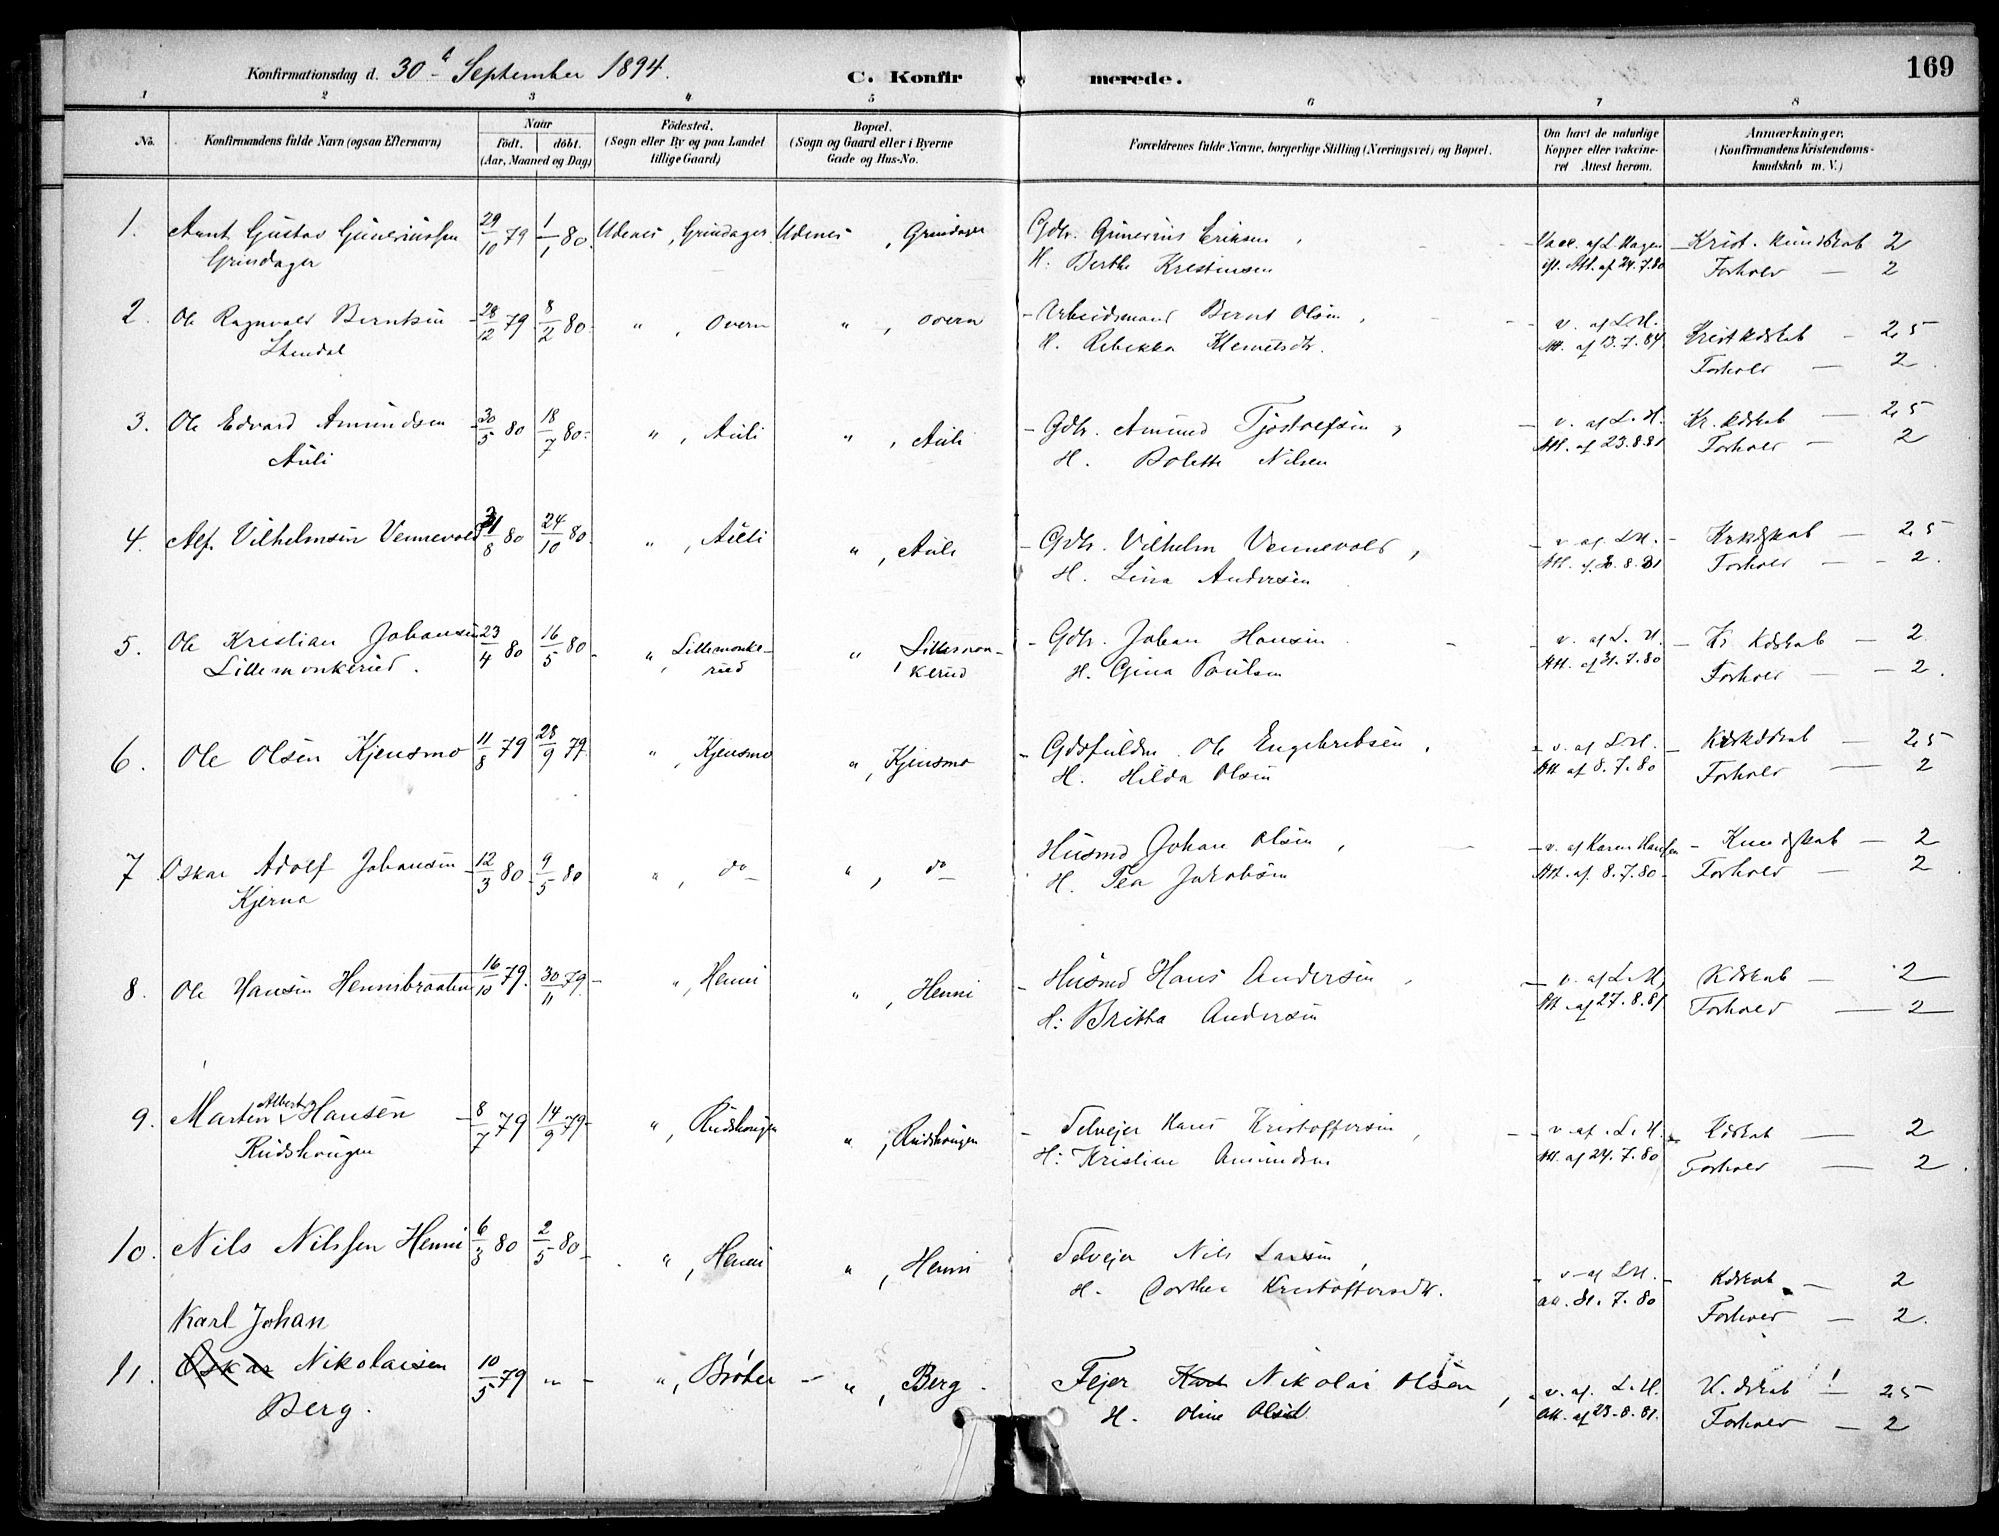 Konfirmationsdag d. 30te September 1894.
C. Konfirmerede.
169
1 2 3 4 5 6 7 8
No.
Konfirmandens fulde Navn (ogsaa Efternavn)
Naar
födt. döbt.
(Aar, Maaned og Dag)
Födested.
(Sogn eller By og paa Landet
tillige Gaard)
Bopæl.
(Sogn og Gaard eller i Byerne
Gade og Hus-No.
Forældrenes fulde Navne, borgerlige Stilling (Næringsvei) og Bopæl.
Om havt de naturlige
Kopper eller vakcine-
ret Attest herom.
Anmærkninger.
(Konfirmandens Kristendoms-
kundskab m. V.)
1. Aunt Gustav Guneriussen 29/10 79 1/1 80. Udenes, Grindager Udenes, Grindager Gdbr. Gunerius Eriksen, Vacc. af L. Hagen Krist. kundskab 2
Grindager H. Berthe Kristensen Att. af 24.7.80 Forhold — 2
2. Ole Ragnvald Berntsen 28/12 79 8/2 80. " , Overn " , Overn Arbeidsmand Bernt Olsen, v. af L.H. Kristkdskab — 2,5
Stendal H. Rebekka Klemetsdtr. Att. af 13.7.84 Forhold — 2
3. Ole Edvard Amundsen 30/5 80 18/7 80. " , Auli " , Auli Gdbr. Amund Tjostolfsen, v. af L.H. Kr. kdskab — 2,5
Auli H. Bolette Nilsen Att. af 23.8.81 Forhold — 2
4. Alf Vilhelmsen Vennevold 31/8 80 24/10 80. " , Auli " , Auli Gdbr. Vilhelm Vennevold, v. af L.H. Krkdskab — 2,5
H. Lina Andersen Forhold — 2.
5. Ole Kristian Johansen 23/4 80 16/5 80 " , Lillemonke- " , Lillemon- Gdbr. Johan Hansen v. af L.H. Kr kdskab — 2
Lillemonkerud. rud kerud H. Gina Paulsen Att. af 31.7.80 Forhold — 2.
6. Ole Olsen Kjensmo 11/8 79 28/9 79. " , Kjensmo " , Kjensmo Ole Engebretsen, v. af L.H. Krkdskab — 2,5
H. Hilda Olsen Att af 8.7.80 Forhold — 2
7 Oskar Adolf Johansen 12/3 80 9/5 80 " , do " , do Husmd Johan Olsen, v. af Karen Hansen Kundskab — 2
Kjerna H. Tea Jakobsen Att. af 8.7.80 Forhold — 2
8. Ole Hansen Hennibraaten 16/10 79. 30/11 79. " , Henni " , Henni Husmd Hans Andersen, v. af L.H. Kdskab — 2
H: Britha Andersen Att. af 27.8.81 Forhold — 2
9. Marten Albert Hansen 8/7 79 14/9 79 " , Rudshaugen " , Rudshaugen Selvejer Hans Kristoffersen, v. af L.H. Kdskab — 2
Rudshaugen H: Kristine Amundsen Att. af 24.7.80 Forhold — 2.
10. Nils Nilssen Henni 6/3 80 2/5 80 " , Henni " , Henni Selvejer Nils Larsen, v. af L.H. Kdskab — 2
H. Dorthea Kristoffersdtr. Att. 31.7.80 Forhold — 2.
Karl Johan
11. Oskar Nikolaisen 10/5 79 " " , Bröter " , Berg. Fejer Karl Nikolai Olsen, v. af. L.H. K.dskab — 2,5
Berg. H. Oline Olsd. Att. af 23.8.81. Forhold — 2